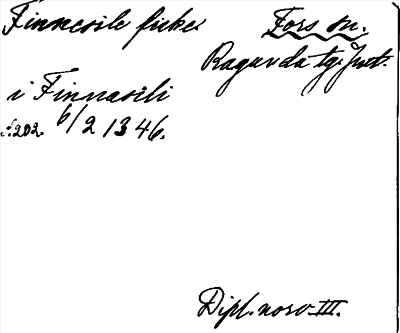 Finnesile fiske
Fors sn.
Ragunda tg. Jmt.
i Finnasili
s. 202. 6/2 1346.
Dipl. norv. III.